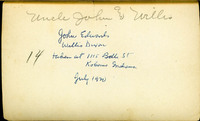 Uncle John & Willis
John Edwards
Willis Dixon
14 taken at 1115 Bell St
Kokomo Indiana
July 1920